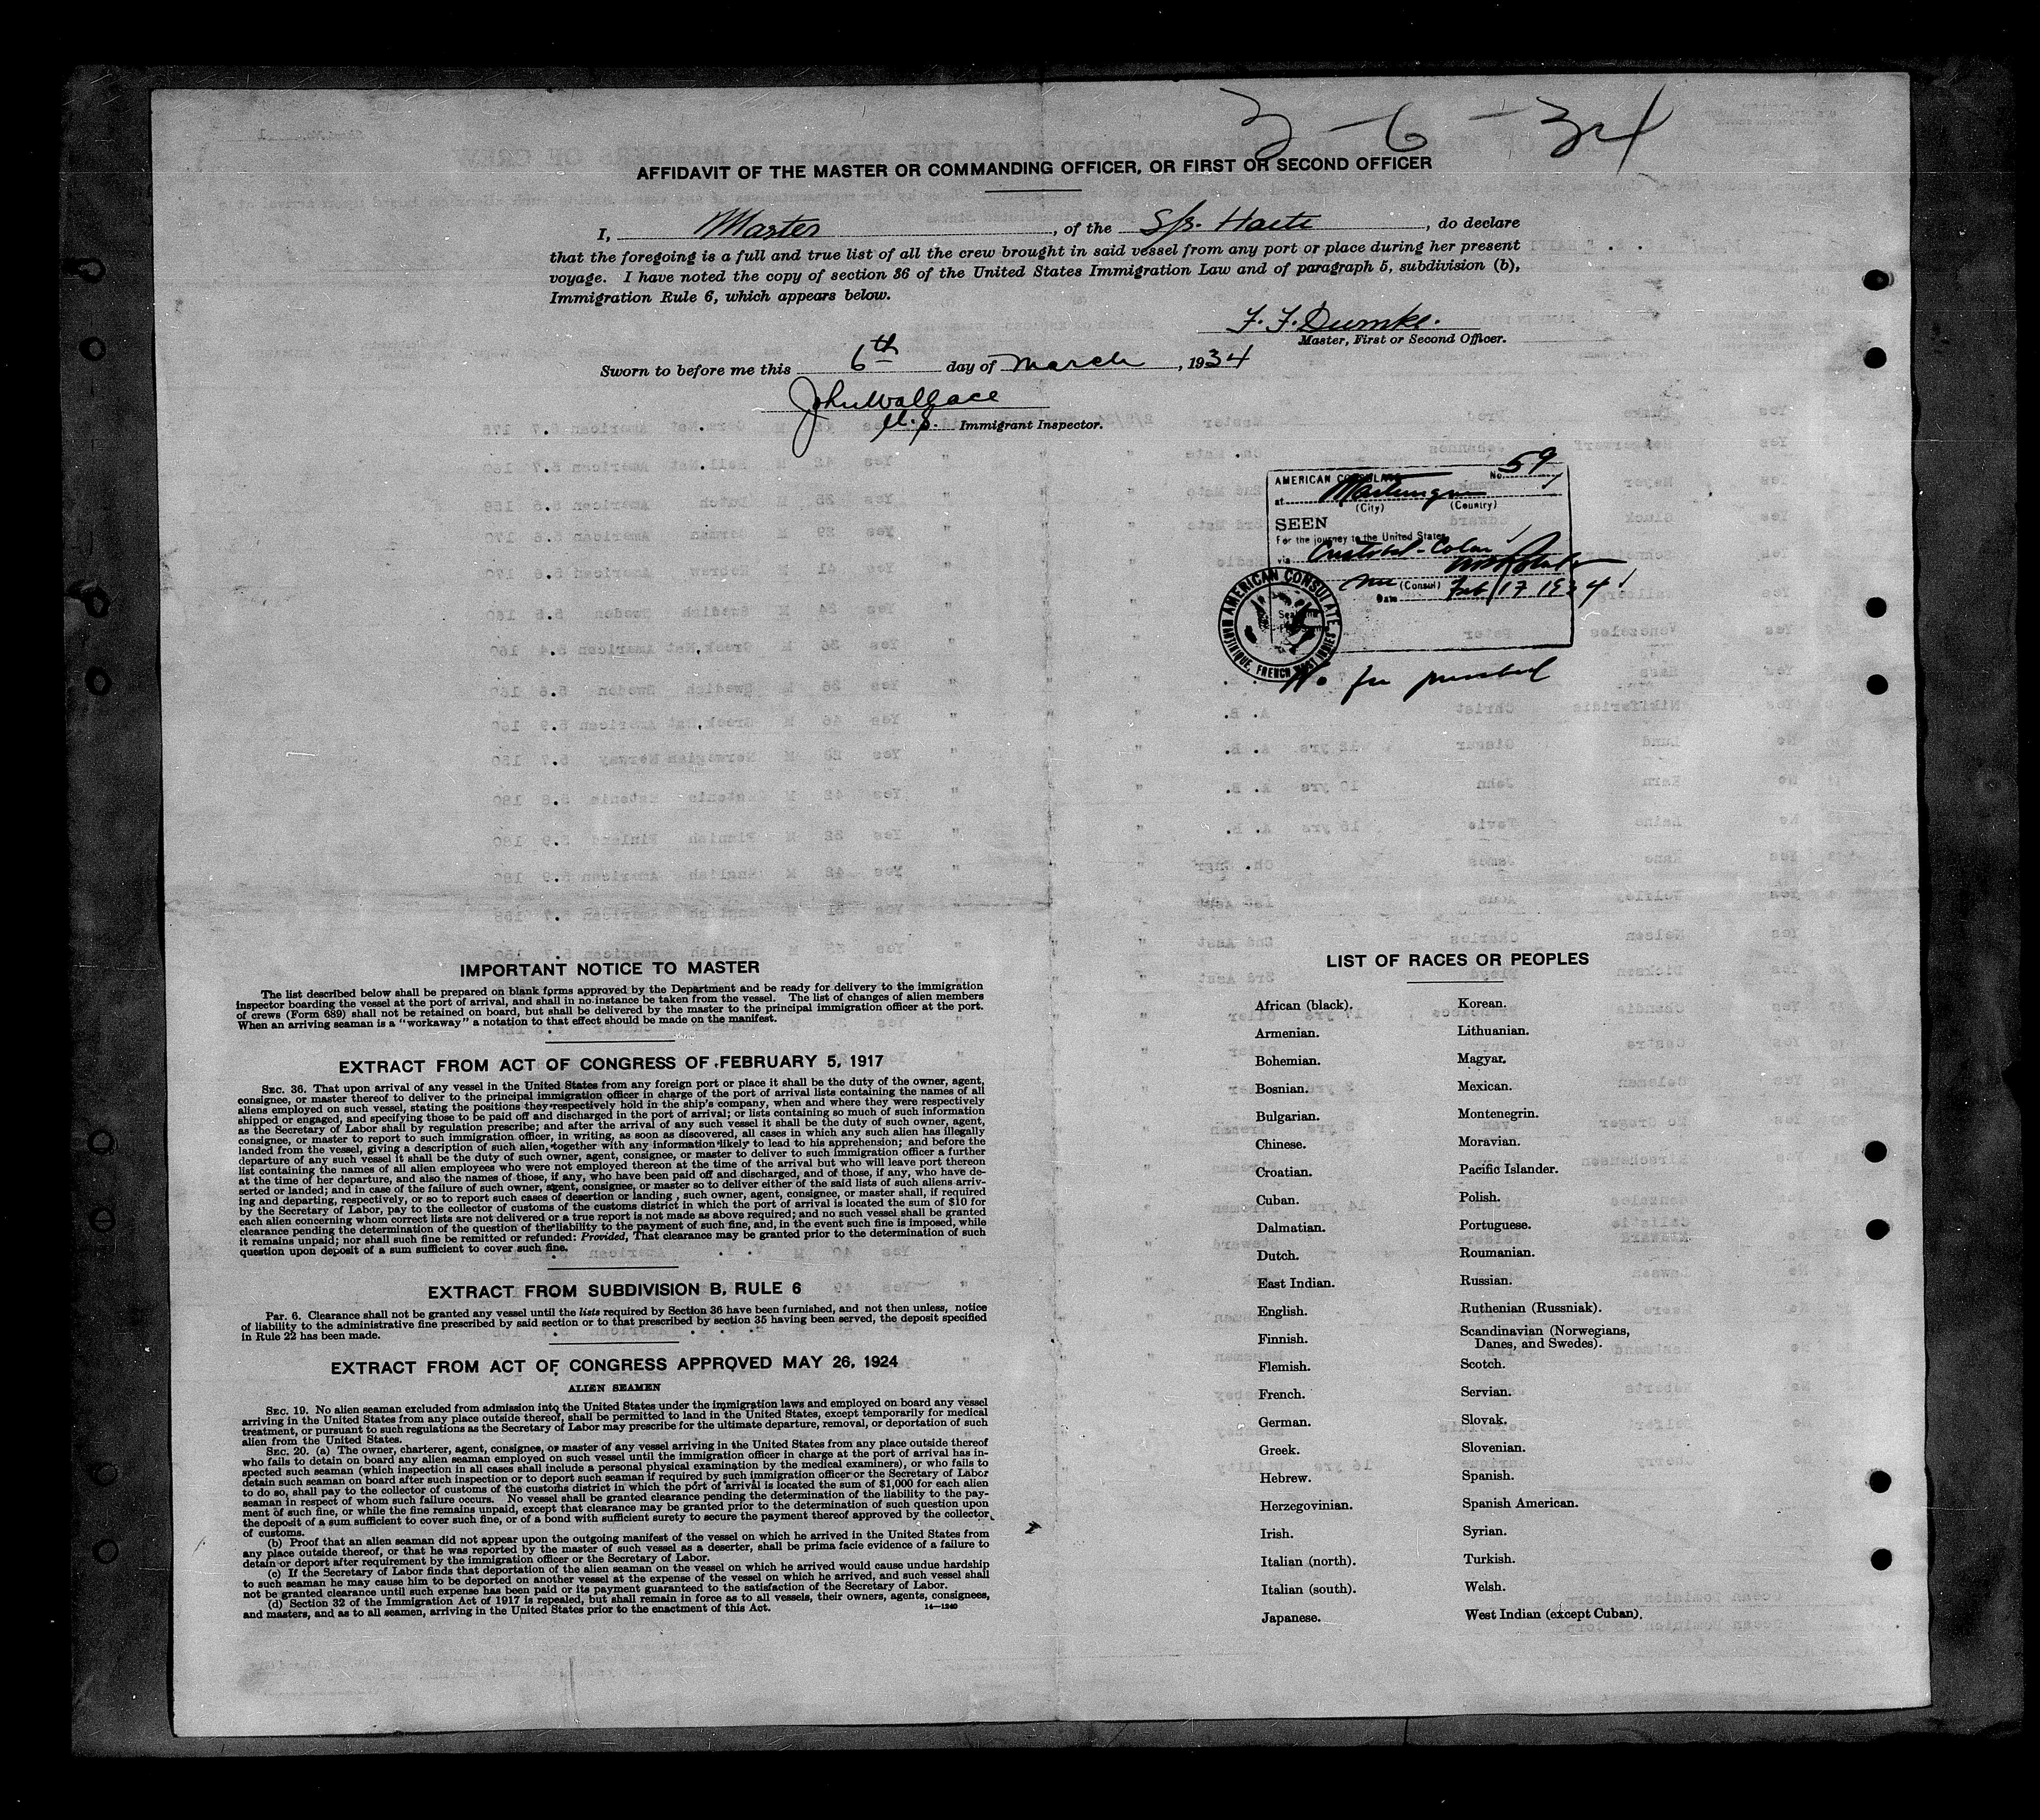 3-6-34
AFFIDAVIT OF THE MASTER OR COMMANDING OFFICER, OR FIRST OR SECOND OFFICER
I, Master, of the S/S. Haiti, do declare
that the foregoing is a full and true list of all the crew brought in said vessel from any port or place during her present
voyage. I have noted the copy of section 36 of the United States Immigration Law and of paragraph 5, subdivision (b),
Immigration Rule 6, which appears below.
F. F. Dumke.
Master, First or Second Officer.
Sworn to before me this 6th day of March, 1934
John Wallace
U.S. Immigrant Inspector.
AMERICAN CONSULATE No. 59
at Martinique
(City) (Country)
SEEN
For the journey to the United States
via Cristobal-Colon
(Consul)
Date Feb 17 1934
AMERICAN CONSULATE
MARTINIQUE, FRENCH WEST INDIES
No fee
IMPORTANT NOTICE TO MASTER
The list described below shall be prepared on blank forms approved by the Department and be ready for delivery to the immigration
inspector boarding the vessel at the port of arrival, and shall in no instance be taken from the vessel. The list of changes of alien members
of crews (Form 689) shall not be retained on board, but shall be delivered by the master to the principal immigration officer at the port.
When an arriving seaman is a "workaway" a notation to that effect should be made on the manifest.
EXTRACT FROM ACT OF CONGRESS OF FEBRUARY 5, 1917
SEC. 36. That upon arrival of any vessel in the United States from any foreign port or place it shall be the duty of the owner, agent,
consignee, or master thereof to deliver to the principal immigration officer in charge of the port of arrival lists containing the names of all
aliens employed on such vessel, stating the positions they respectively hold in the ship's company, when and where they were respectively
shipped or engaged, and specifying those to be paid off and discharged in the port of arrival; or lists containing so much of such information
as the Secretary of Labor shall by regulation prescribe; and after the arrival of any such vessel it shall be the duty of such owner, agent,
consignee, or master to report to such immigration officer, in writing, as soon as discovered, all cases in which any such alien has illegally
landed from the vessel, giving a description of such alien, together with any information likely to lead to his apprehension; and before the
departure of any such vessel it shall be the duty of such owner, agent, consignee, or master to deliver to such immigration officer a further
list containing the names of all alien employees who were not employed thereon at the time of the arrival but who will leave port thereon
at the time of her departure, and also the names of those, if any, who have been paid off and discharged, and of those, if any, who have de-
serted or landed; and in case of the failure of such owner, agent, consignee, or master so to deliver either of the said lists of such aliens arriv-
ing and departing, respectively, or so to report such cases of desertion or landing, such owner, agent, consignee, or master shall, if required
by the Secretary of Labor, pay to the collector of customs of the customs district in which the port of arrival is located the sum of $10 for
each alien concerning whom correct lists are not delivered or a true report is not made as above required; and no such vessel shall be granted
clearance pending the determination of the question of the liability to the payment of such fine, and, in the event such fine is imposed, while
it remains unpaid; nor shall such fine be remitted or refunded: Provided, That clearance may be granted prior to the determination of such
question upon deposit of a sum sufficient to cover such fine.
EXTRACT FROM SUBDIVISION B, RULE 6
Par. 6. Clearance shall not be granted any vessel until the lists required by Section 36 have been furnished, and not then unless, notice
of liability to the administrative fine prescribed by said section or to that prescribed by section 35 having been served, the deposit specified
in Rule 22 has been made.
EXTRACT FROM ACT OF CONGRESS APPROVED MAY 26, 1924
ALIEN SEAMEN
SEC. 19. No alien seaman excluded from admission into the United States under the immigration laws and employed on board any vessel
arriving in the United States from any place outside thereof, shall be permitted to land in the United States, except temporarily for medical
treatment, or pursuant to such regulations as the Secretary of Labor may prescribe for the ultimate departure, removal, or deportation of such
alien from the United States.
SEC. 20. (a) The owner, charterer, agent, consignee, or master of any vessel arriving in the United States from any place outside thereof
who fails to detain on board any alien seaman employed on such vessel until the immigration officer in charge at the port of arrival has in-
spected such seaman (which inspection in all cases shall include a personal physical examination by the medical examiners), or who fails to
detain such seaman on board after such inspection or to deport such seaman if required by such immigration officer or the Secretary of Labor
to do so, shall pay to the collector of customs of the customs district in which the port of arrival is located the sum of $1,000 for each alien
seaman in respect of whom such failure occurs. No vessel shall be granted clearance pending the determination of the liability to the pay-
ment of such fine, or while the fine remains unpaid, except that clearance may be granted prior to the determination of such question upon
the deposit of a sum sufficient to cover such fine, or of a bond with sufficient surety to secure the payment thereof approved by the collector
of customs.
(b) Proof that an alien seaman did not appear upon the outgoing manifest of the vessel on which he arrived in the United States from
any place outside thereof, or that he was reported by the master of such vessel as a deserter, shall be prima facie evidence of a failure to
detain or deport after requirement by the immigration officer or the Secretary of Labor.
(c) If the Secretary of Labor finds that deportation of the alien seaman on the vessel on which he arrived would cause undue hardship
to such seaman he may cause him to be deported on another vessel at the expense of the vessel on which he arrived, and such vessel shall
not be granted clearance until such expense has been paid or its payment guaranteed to the satisfaction of the Secretary of Labor.
(d) Section 32 of the Immigration Act of 1917 is repealed, but shall remain in force as to all vessels, their owners, agents, consignees,
and masters, and as to all seamen, arriving in the United States prior to the enactment of this Act.
14—1240
LIST OF RACES OR PEOPLES
African (black).
Armenian.
Bohemian.
Bosnian.
Bulgarian.
Chinese.
Croatian.
Cuban.
Dalmatian.
Dutch.
East Indian.
English.
Finnish.
Flemish.
French.
German.
Greek.
Hebrew.
Herzegovinian.
Irish.
Italian (north).
Italian (south).
Japanese.
Korean.
Lithuanian.
Magyar.
Mexican.
Montenegrin.
Moravian.
Pacific Islander.
Polish.
Portuguese.
Roumanian.
Russian.
Ruthenian (Russniak).
Scandinavian (Norwegians,
Danes, and Swedes).
Scotch.
Servian.
Slovak.
Slovenian.
Spanish.
Spanish American.
Syrian.
Turkish.
Welsh.
West Indian (except Cuban).